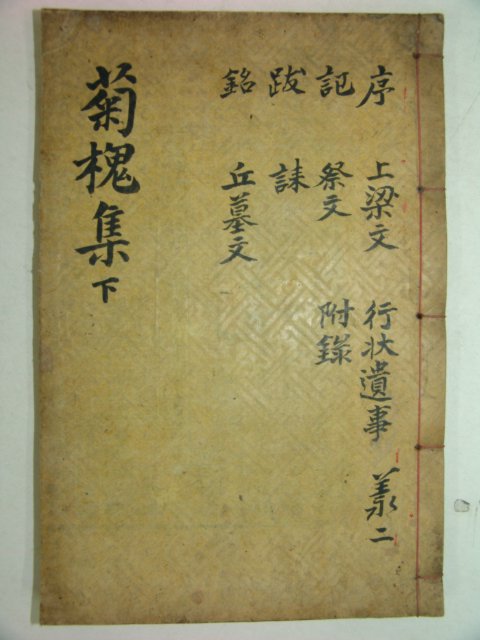 序 上梁文 行状遺事 羕二
記 祭文 附錄
跋 誄
銘 丘墓文
菊槐集下